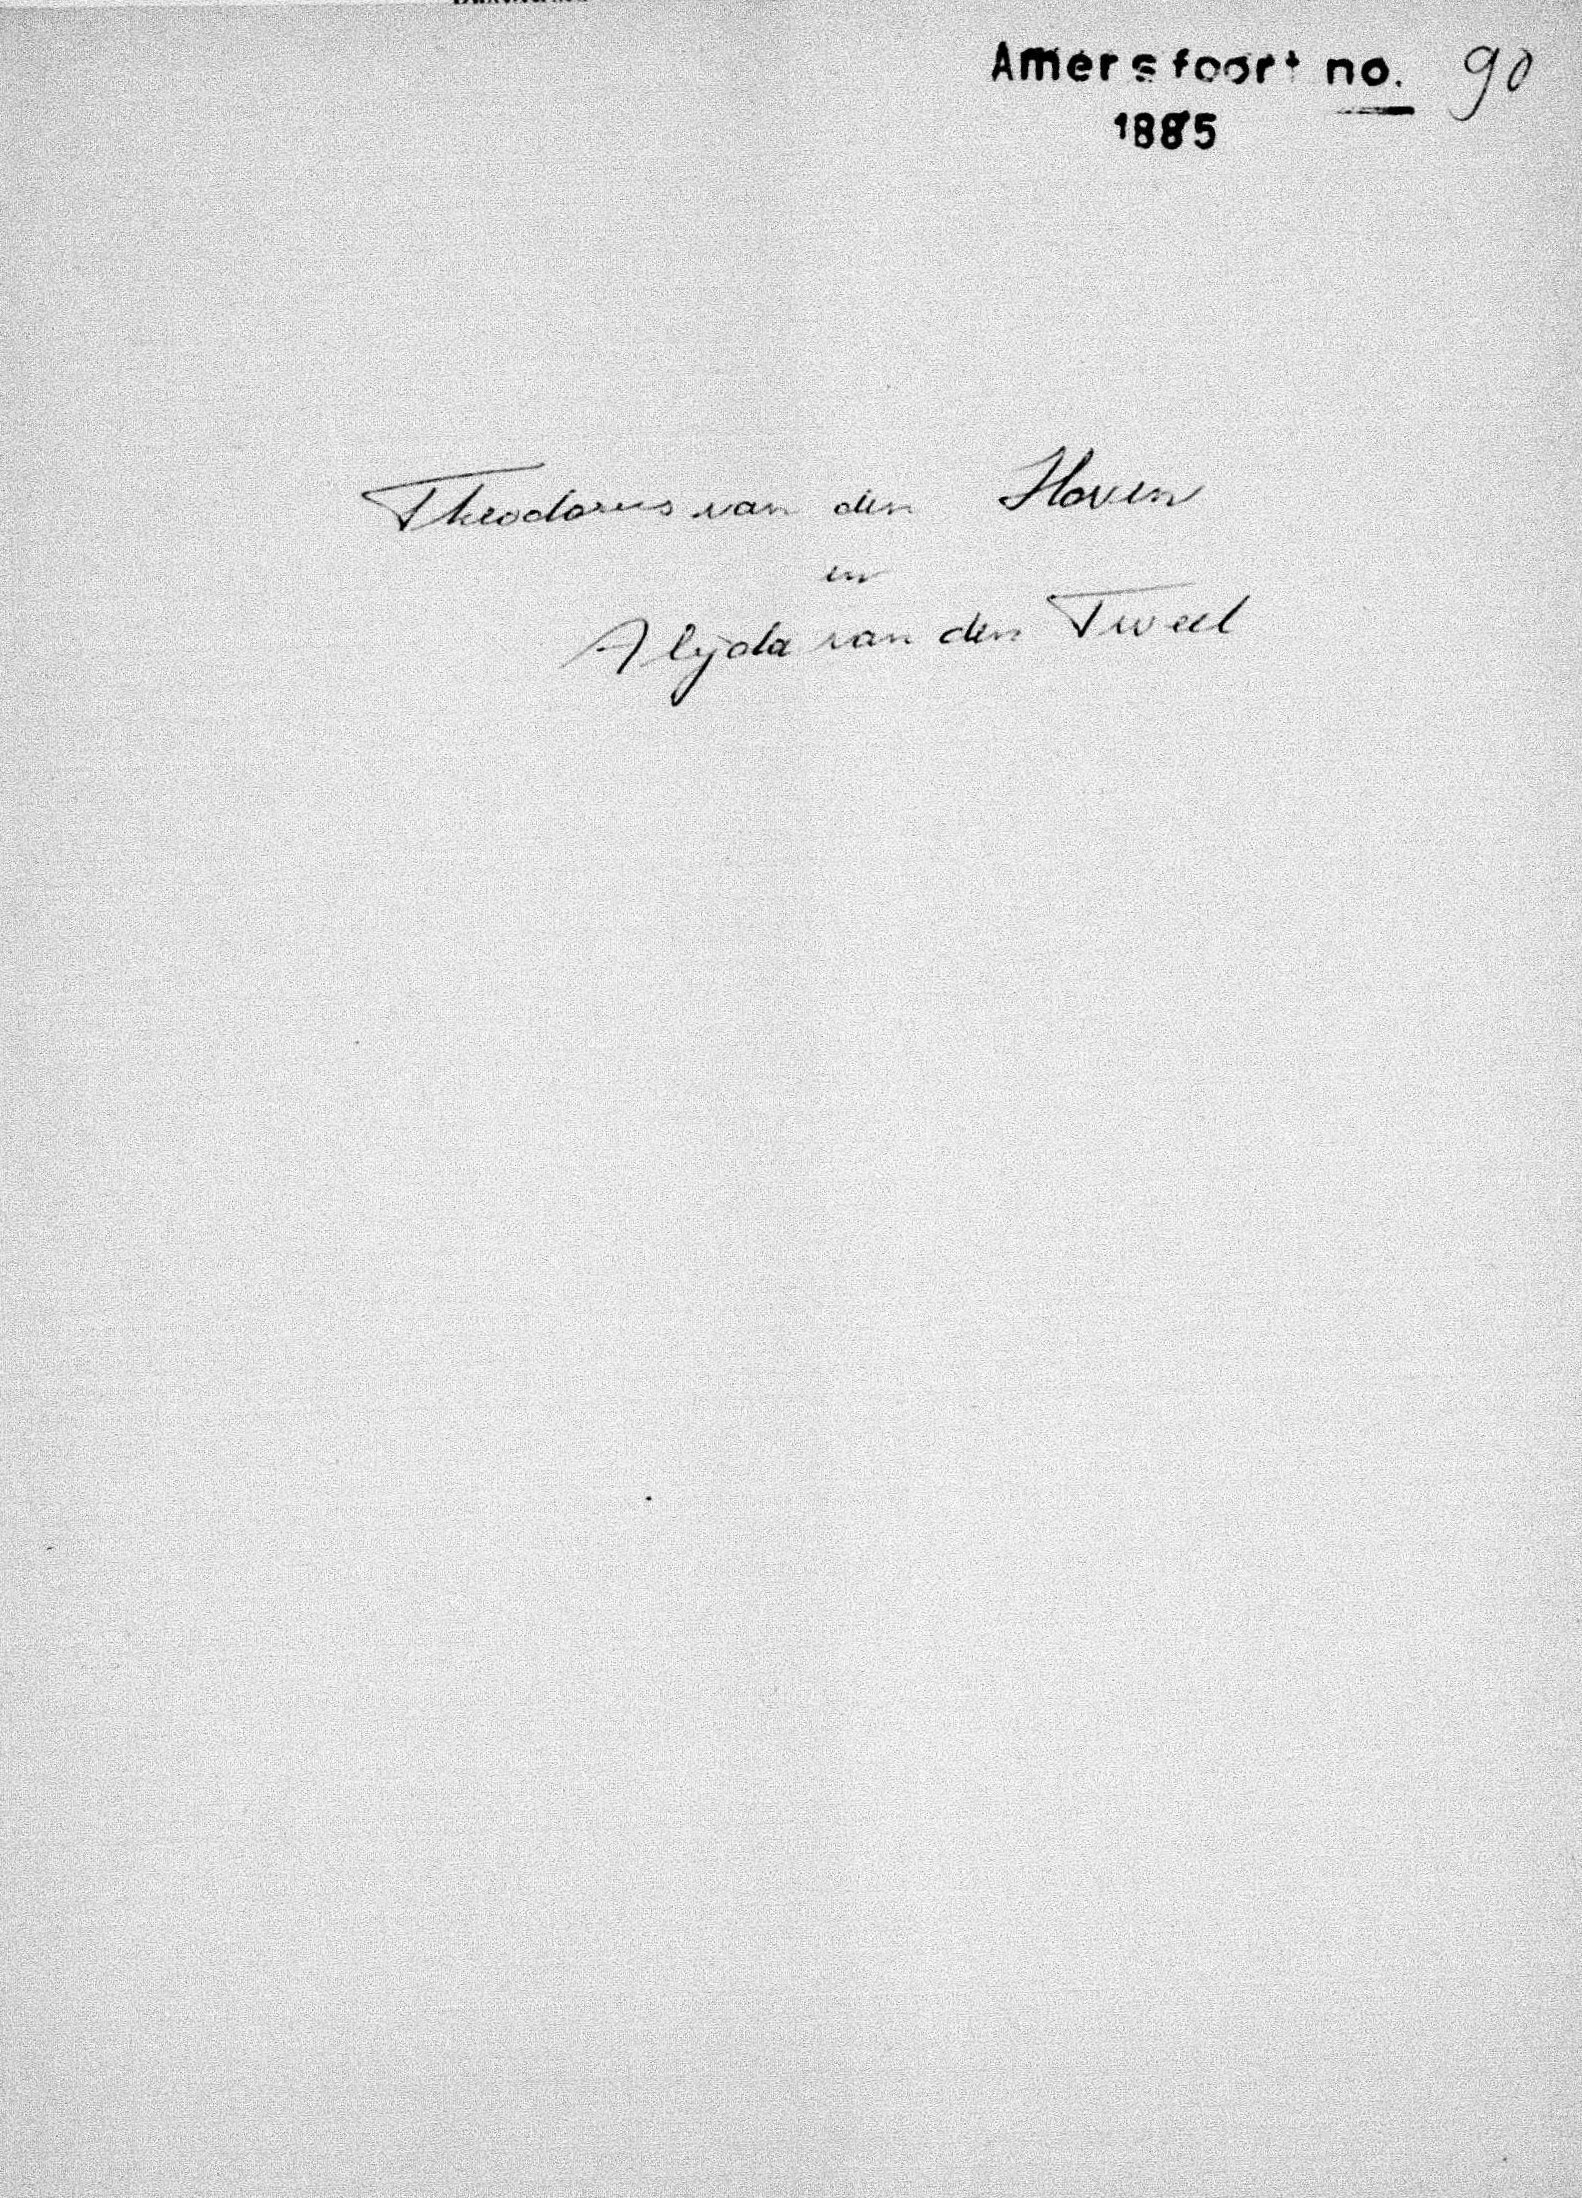 Amersfoort no. 90
1885
Theodorus van den Hoven
en
Alijda van den Tweel